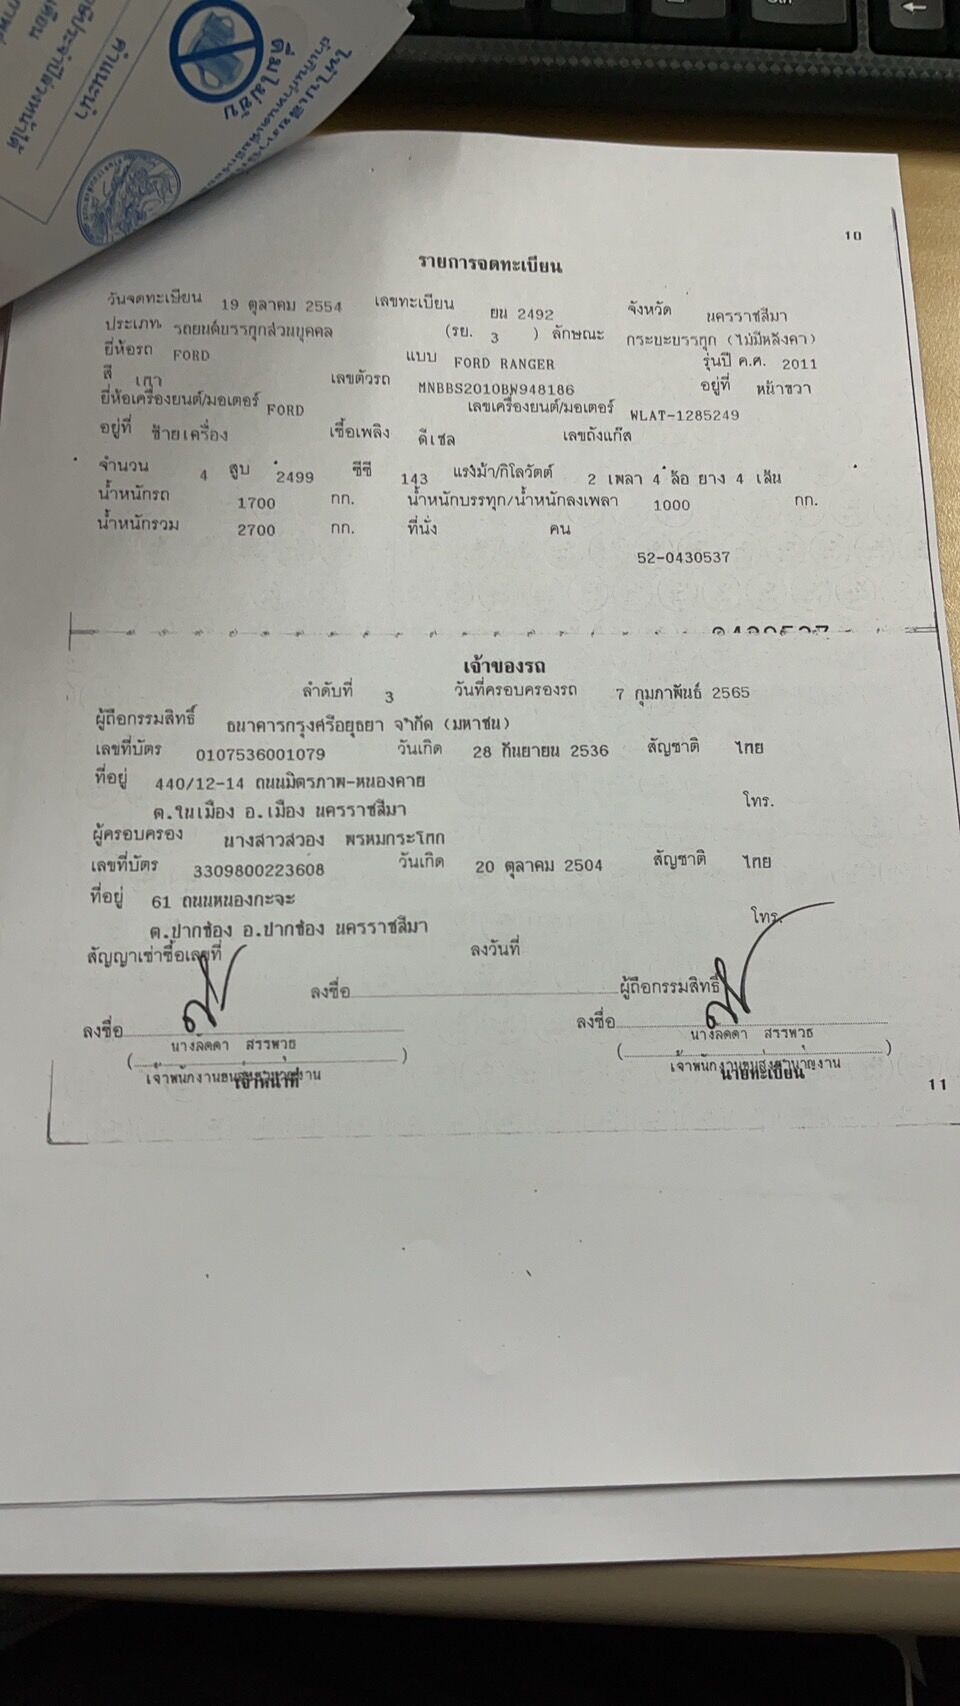 คำแนะนำ
ดื่มไม่ขับ
10
รายการจดทะเบียน
วันจดทะเบียน 19 ตุลาคม 2554 เลขทะเบียน ยน 2492 จังหวัด นครราชสีมา
ประเภท รถยนต์บรรทุกส่วนบุคคล (รย. 3 ) ลักษณะ กระบะบรรทุก (ไม่มีหลังคา)
ยี่ห้อรถ FORD แบบ FORD RANGER รุ่นปี ค.ศ. 2011
สี เทา เลขตัวรถ MNBBS2010BW948186 อยู่ที่ หน้าขวา
ยี่ห้อเครื่องยนต์/มอเตอร์ FORD เลขเครื่องยนต์/มอเตอร์ WLAT-1285249
อยู่ที่ ซ้ายเครื่อง เชื้อเพลิง ดีเซล เลขถังแก๊ส
จำนวน 4 สูบ 2499 ซีซี 143 แรงม้า/กิโลวัตต์ 2 เพลา 4 ล้อ ยาง 4 เส้น
น้ำหนักรถ 1700 กก. น้ำหนักบรรทุก/น้ำหนักลงเพลา 1000 กก.
น้ำหนักรวม 2700 กก. ที่นั่ง คน
52-0430537
เจ้าของรถ
ลำดับที่ 3 วันที่ครอบครองรถ 7 กุมภาพันธ์ 2565
ผู้ถือกรรมสิทธิ์ ธนาคารกรุงศรีอยุธยา จำกัด (มหาชน)
เลขที่บัตร 0107536001079 วันเกิด 28 กันยายน 2536 สัญชาติ ไทย
ที่อยู่ 440/12-14 ถนนมิตรภาพ-หนองคาย
ต.ในเมือง อ.เมือง นครราชสีมา โทร.
ผู้ครอบครอง นางสาวสวอง พรหมกระโทก
เลขที่บัตร 3309800223608 วันเกิด 20 ตุลาคม 2504 สัญชาติ ไทย
ที่อยู่ 61 ถนนหนองกะจะ
ต.ปากช่อง อ.ปากช่อง นครราชสีมา โทร.
สัญญาเช่าซื้อเลขที่ ลงวันที่
ลงชื่อ ผู้ถือกรรมสิทธิ์
ลงชื่อ ลงชื่อ
นางลัดดา สรรพวุธ นางลัดดา สรรพวุธ
( ) ( )
เจ้าพนักงานขนส่งชำนาญงาน เจ้าพนักงานขนส่งชำนาญงาน
เจ้าหน้าที่ นายทะเบียน
11